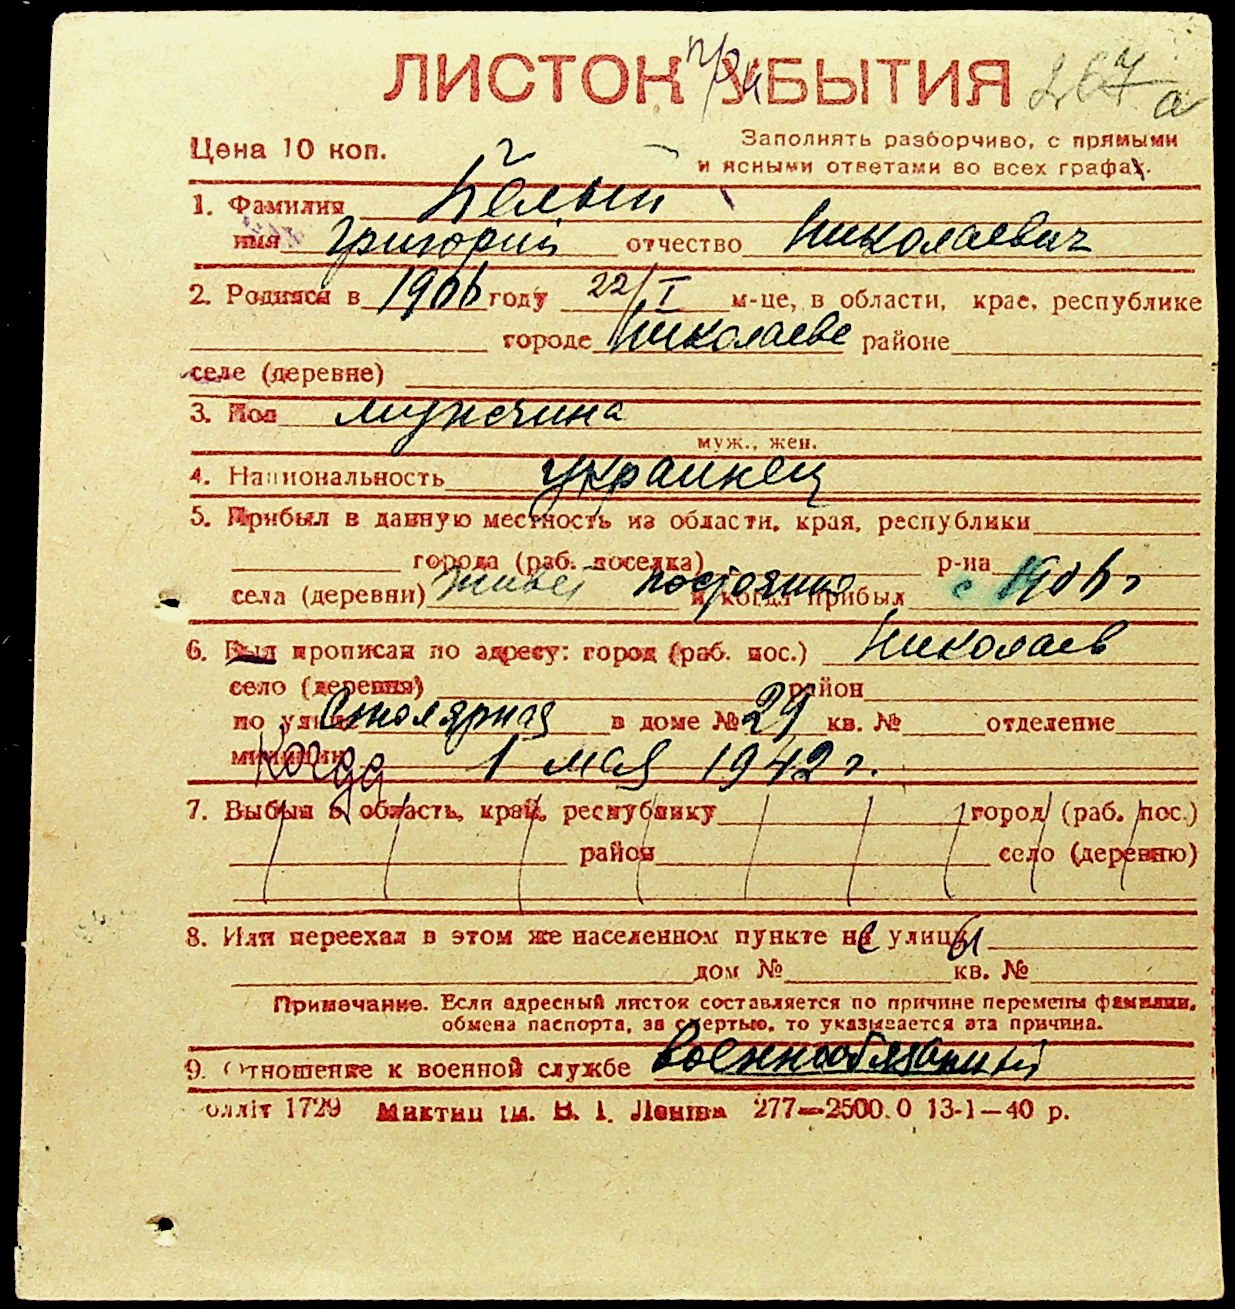 ЛИСТОК УБЫТИЯ
при
267 а
Цена 10 коп.
Заполнять разборчиво, с прямыми
и ясными ответами во всех графах.
1. Фамилия Белый
имя Григорий отчество Николаевич
2. Родился в 1906 году 22/I м-це, в области, крае, республике
городе Николаеве районе
селе (деревне)
3. Пол мужчина
муж., жен.
4. Национальность украинец
5. Прибыл в данную местность из области, края, республики
города (раб. поселка) р-на
села (деревни) живет постоянно и когда прибыл с 1906 г
6. Был прописан по адресу: город (раб. пос.) Николаев
село (деревня) район
по улице Столярная в доме № 29 кв. № отделение
милиции Когда 1 мая 1942 г.
7. Выбыл в область, край, республику город (раб. пос.)
район село (деревню)
8. Или переехал в этом же населенном пункте на с улицы
дом № кв. №
Примечание. Если адресный листок составляется по причине перемены фамилии,
обмена паспорта, за смертью, то указывается эта причина.
9. Отношение к военной службе военнообязанный
олліт 1729 Миктип ім. В. І. Леніна 277—2500.0 13-1—40 р.